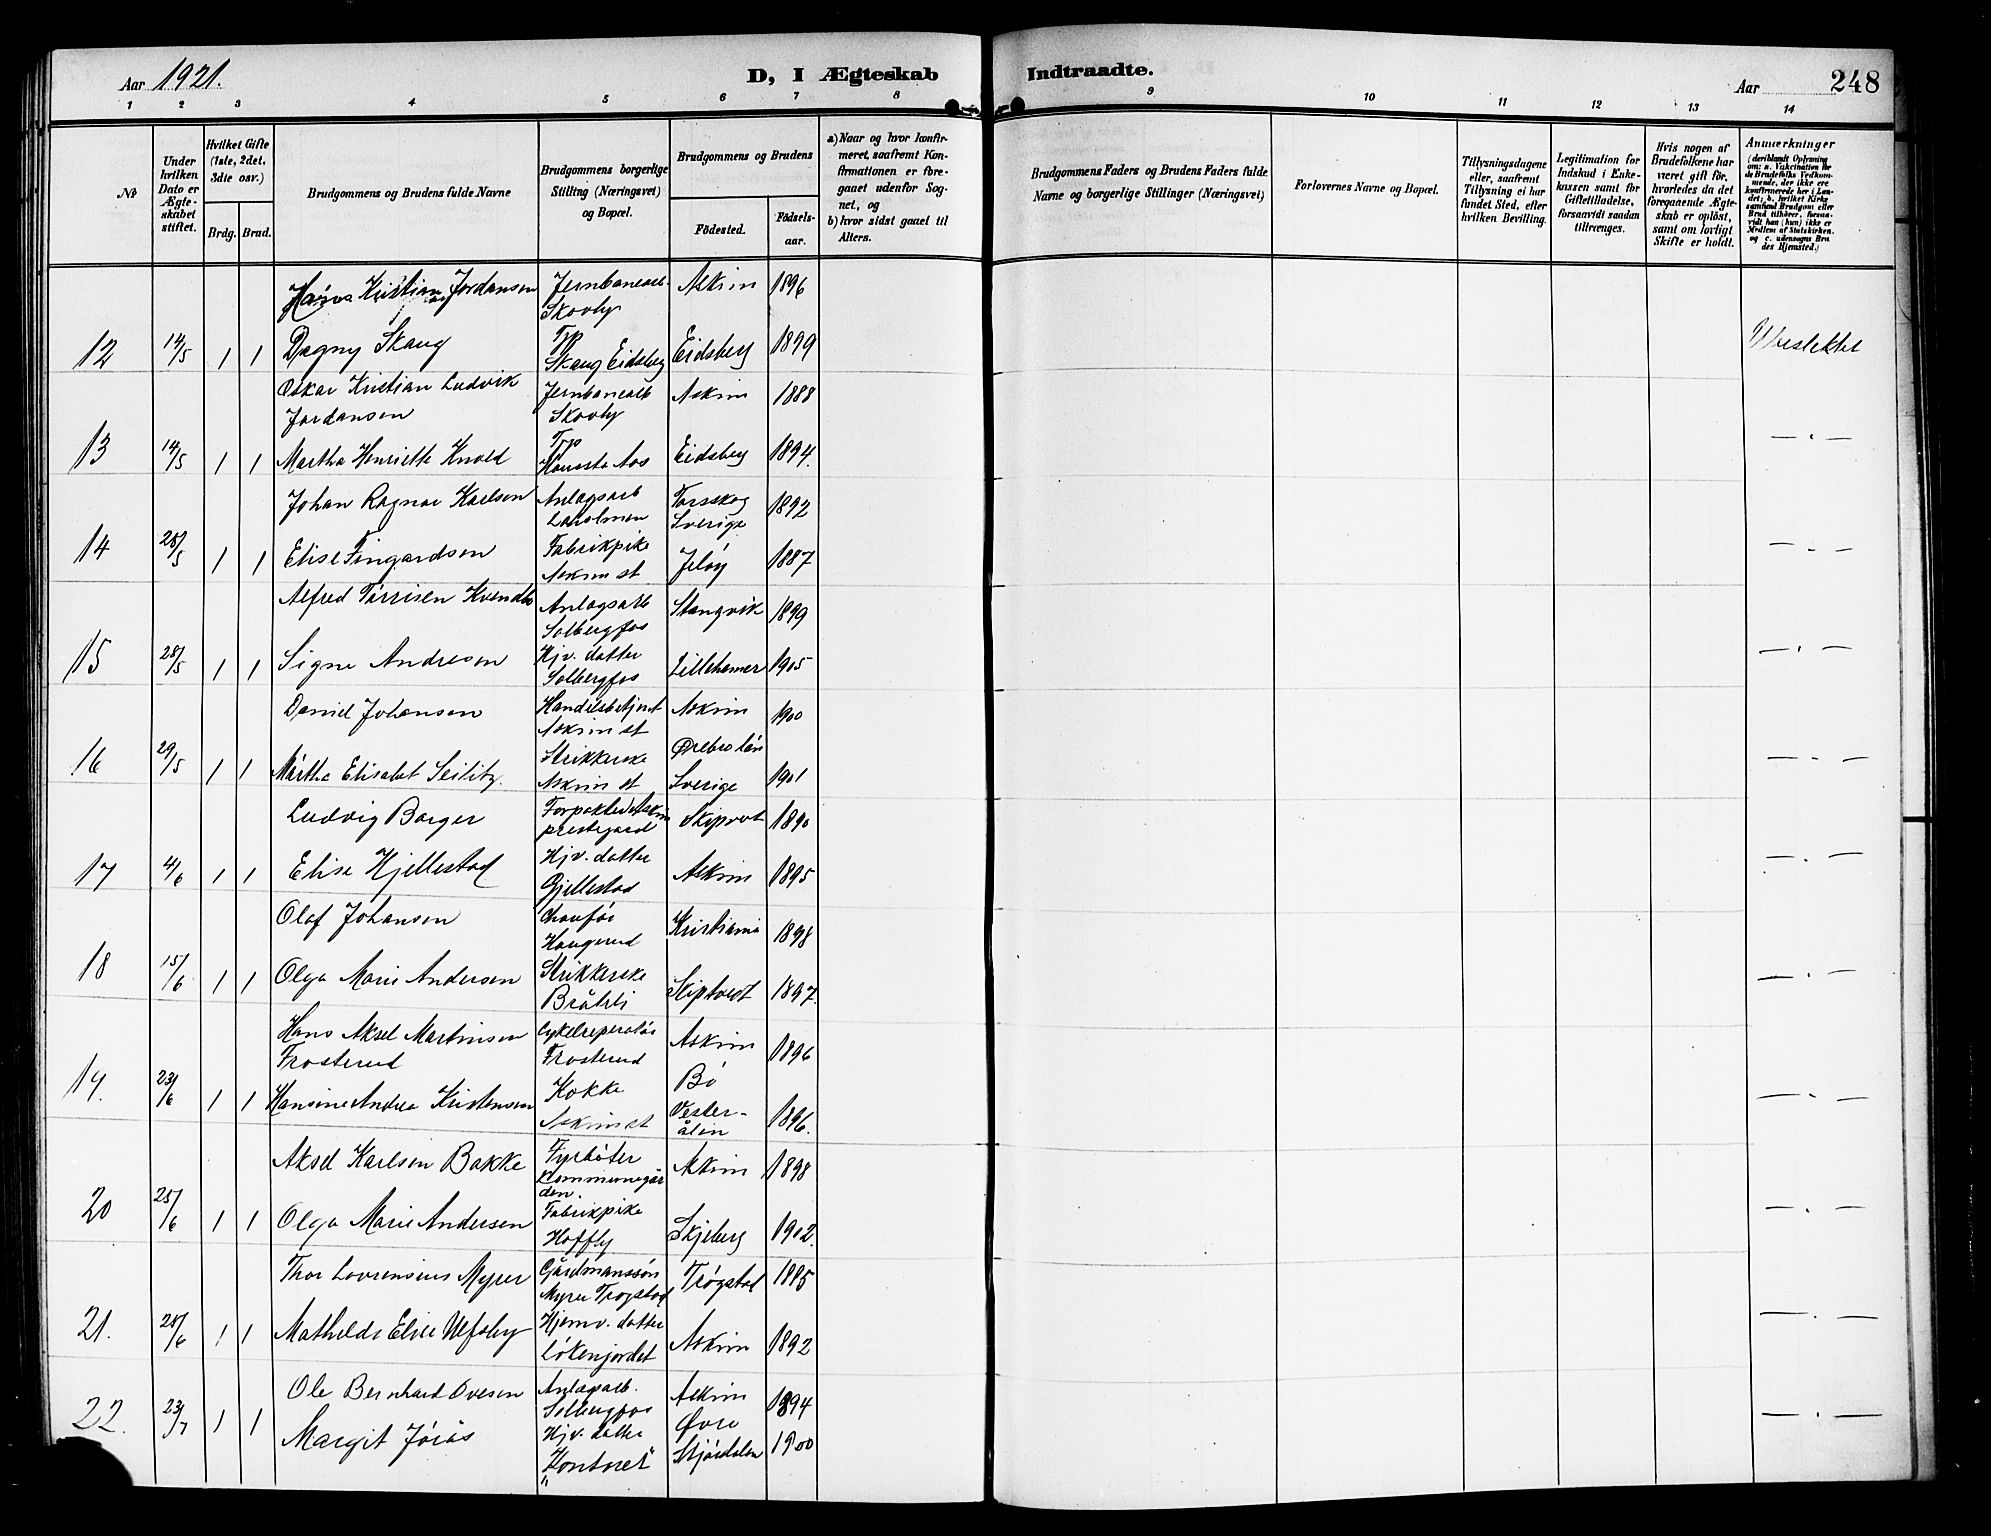 Aar 1921.
D, I Ægteskab
Indtraadte.
Aar
248
1 2 3 4 5 6 7 8 9 10 11 12 13 14
No
Under hvilken Dato er Ægteskabet stiftet.
Hvilket Gifte (1ste, 2det, 3die osv.)
Brdg. Brud.
Brudgommens og Brudens fulde Navne
Brudgommens borgerlige Stilling (Næringsvei) og Bopæl.
Brudgommens og Brudens
Födested.
Födsels-aar.
a) Naar og hvor konfirmeret, saafremt Konfirmationen er foregaaet udenfor Sognet, og
b) hvor sidst gaaet til Alters.
Brudgommens Faders og Brudens Faders fulde Navne og borgerlige Stillinger (Næringsvei)
Forlovernes Navne og Bopæl.
Tillysningsdagene eller, saafremt Tillysning ei har fundet Sted, efter hvilken Bevilling.
Legitimation for Indskud i Enkekassen samt for Giftetilladelse, forsaavidt saadan tiltrænges.
Hvis nogen af Brudefolkene har været gift før, hvorledes da det foregaaende Ægteskab er opløst, samt om lovligt Skifte er holdt.
Anmærkninger
(deriblandt Oplysning om: a. Vakcination for de Brudefolks Vedkommende, der ikke ere konfirmerede her i Landet; b. hvilket Kirkesamfund Brudgom eller Brud tilhører, forsaavidt han (hun) ikke er Medlem af Statskirken. og c. udensogns Brudes Hjemsted.)
Hans Kristian Jordansen Jernbanearb. Skovly Askim 1896
12 14/5 1 1 Dagny Skaug Tjp Skaug Eidsberg Eidsberg 1899 Ubeslektet
Oskar Kristian Ludvik Jordansen Jernbanearb Skovly Askim 1888
13 14/5 1 1 Martha Henriette Knold Tjp Aas Eidsberg 1894. — " —
Johan Ragnar Karlsen Anlagsarb Torsskog Sverige 1892
14 28/5 1 1 Elise Fingardsen Fabrikpike Askim st Jeløy 1887 — " —
Alfred Tørrisen Anlagsarb Solbergfos Stangvik 1899
15 28/5 1 1 Signe Andresen Hjv. datter Solbergfos Lillehamer 1905 — " —
Daniel Johansen Handelsbetjent Askim st Askim 1900
16 29/5 1 1 Märtha Elisabet Seilitz. Strikkerske Askim st Ørebro län Sverige 1901 — " —
Ludvig Borger Forpakter Askim prestegaard Skiptvet 1890
17 4/6 1 1 Elise Hjellestad Hjv. datter Gjellestad Askim 1895 — " —
Olaf Johansen Chauffør Haugerud Kristiania 1898
18 15/6 1 1 Olga Marie Andersen Strikkerske Bråteli Skiptvedt 1897. — " —
Hans Aksel Martinsen Frosterud Cykelreperatør Frosterud Askim 1896
19. 23/6 1 1 Hansine Andrea Kristensen Kokke Askim st Bø Vester-ålen 1896. — " —
Aksel Karlsen Bakke Fyrbøter Kommunegården. Askim 1898
20 25/6 1 1 Olga Marie Andersen Fabrikpike Hoffly Skjeberg 1902. — " —
Thor Lovrensius Myrer Gårdmannssøn Myrer Trøgstad Trøgstad 1885
21. 28/6 1 1 Mathilde Elise Ulfsby Hjemv. datter Løkenjordet Askim 1892 — " —
Ole Bernhard Ovesen Anlagsarb. Solbergfos Askim 1894
22. 23/7 1 1 Margit Jørås Hjv. datter "Kontoret" Øvre Stjørdalen 1900 — " —